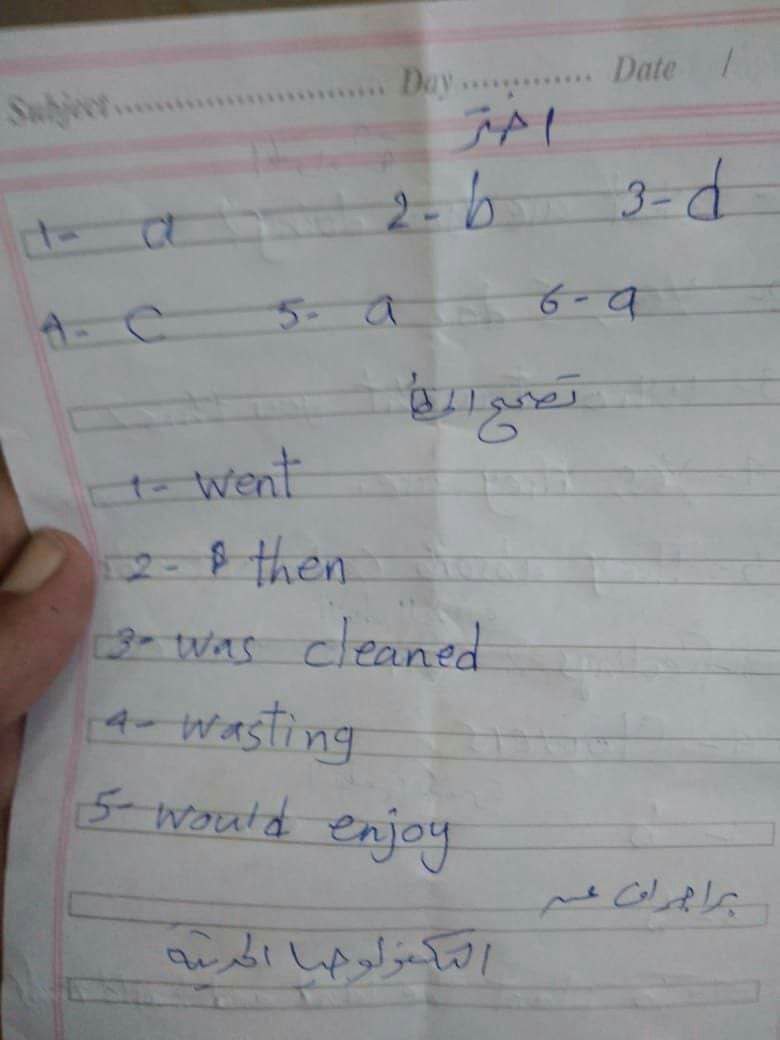 Subject.............................. Day ............. Date /
اختر
1- a 2- b 3- d
4- c 5- a 6- a
تصحيح الخطأ
1- went
2- then
3- was cleaned
4- wasting
5- would enjoy
براجراف عن
التكنولوجيا الحديثة